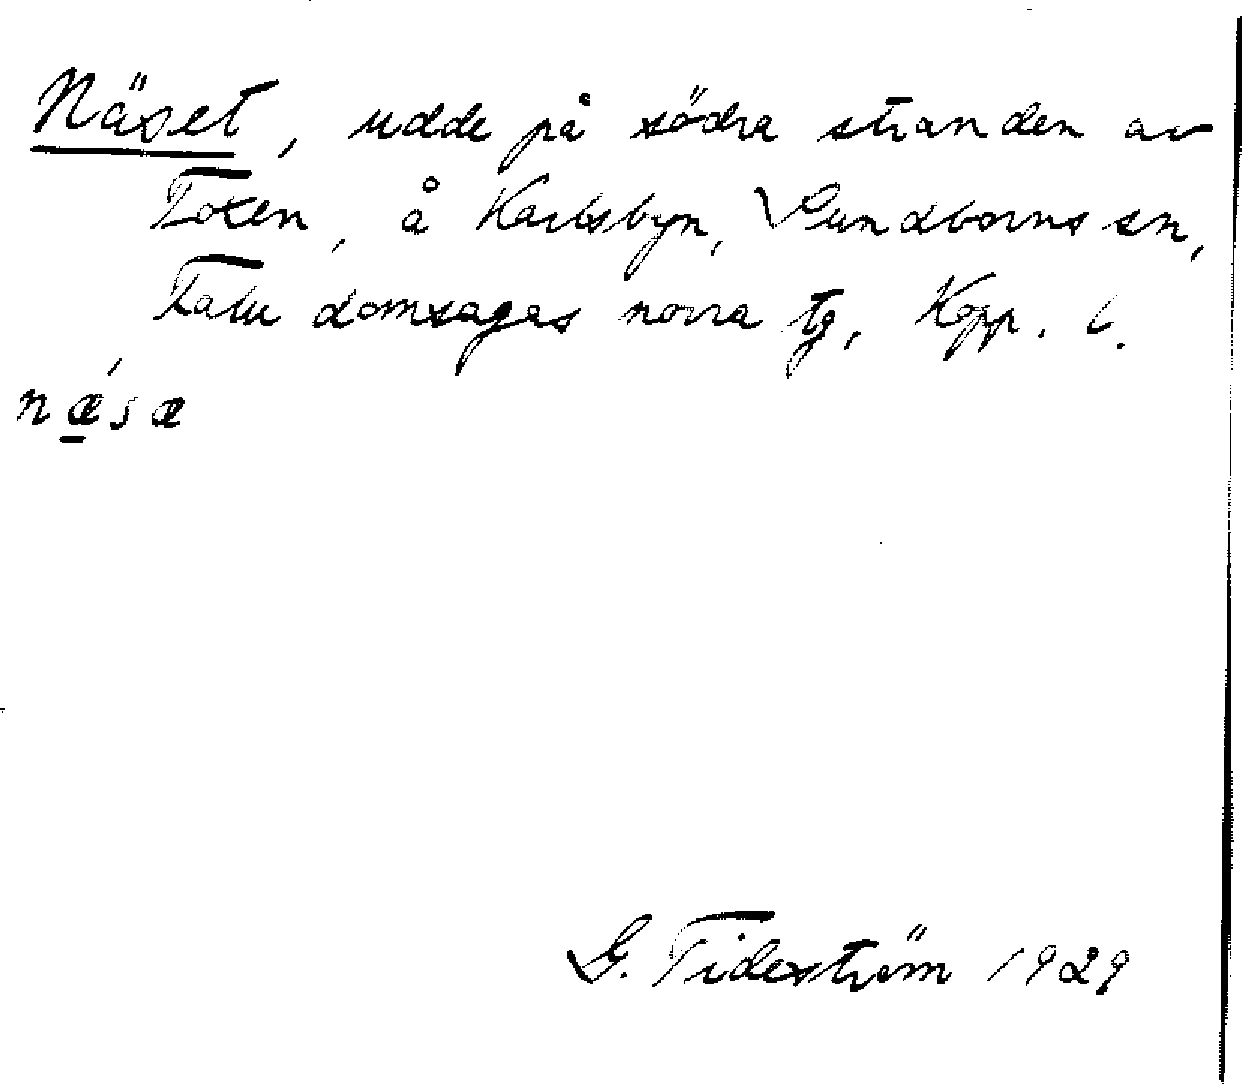 Näset, udde på södra stranden av
Toxen, å Karlsbyn, Sundborns sn,
Falu domsagas norra tg, Kopp. l.
nǽ̱sæ
G. Tideström 1929